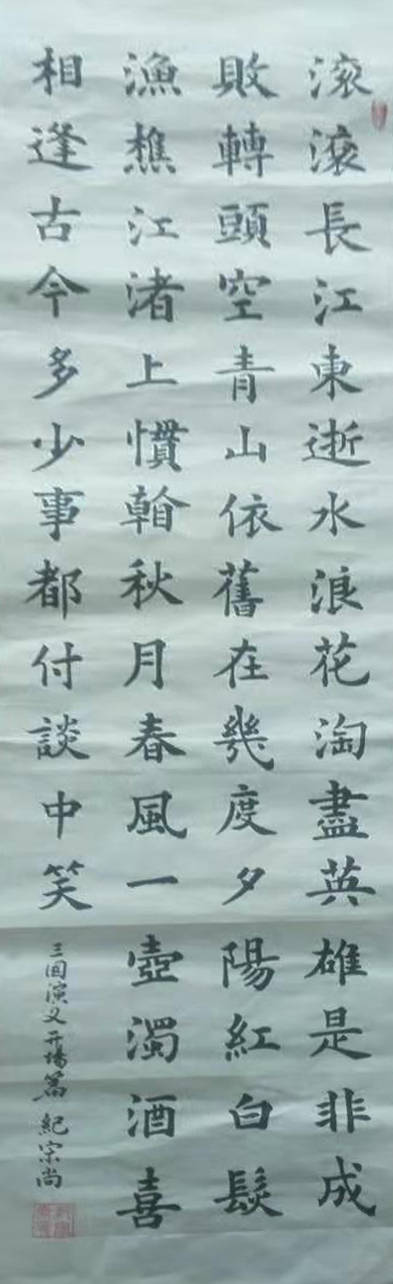 滚滚長江東逝水浪花淘盡英雄是非成
敗轉頭空青山依舊在幾度夕陽紅白髮
漁樵江渚上慣看秋月春風一壺濁酒喜
相逢古今多少事都付談中笑
三国演义开場篇 紀宗尚